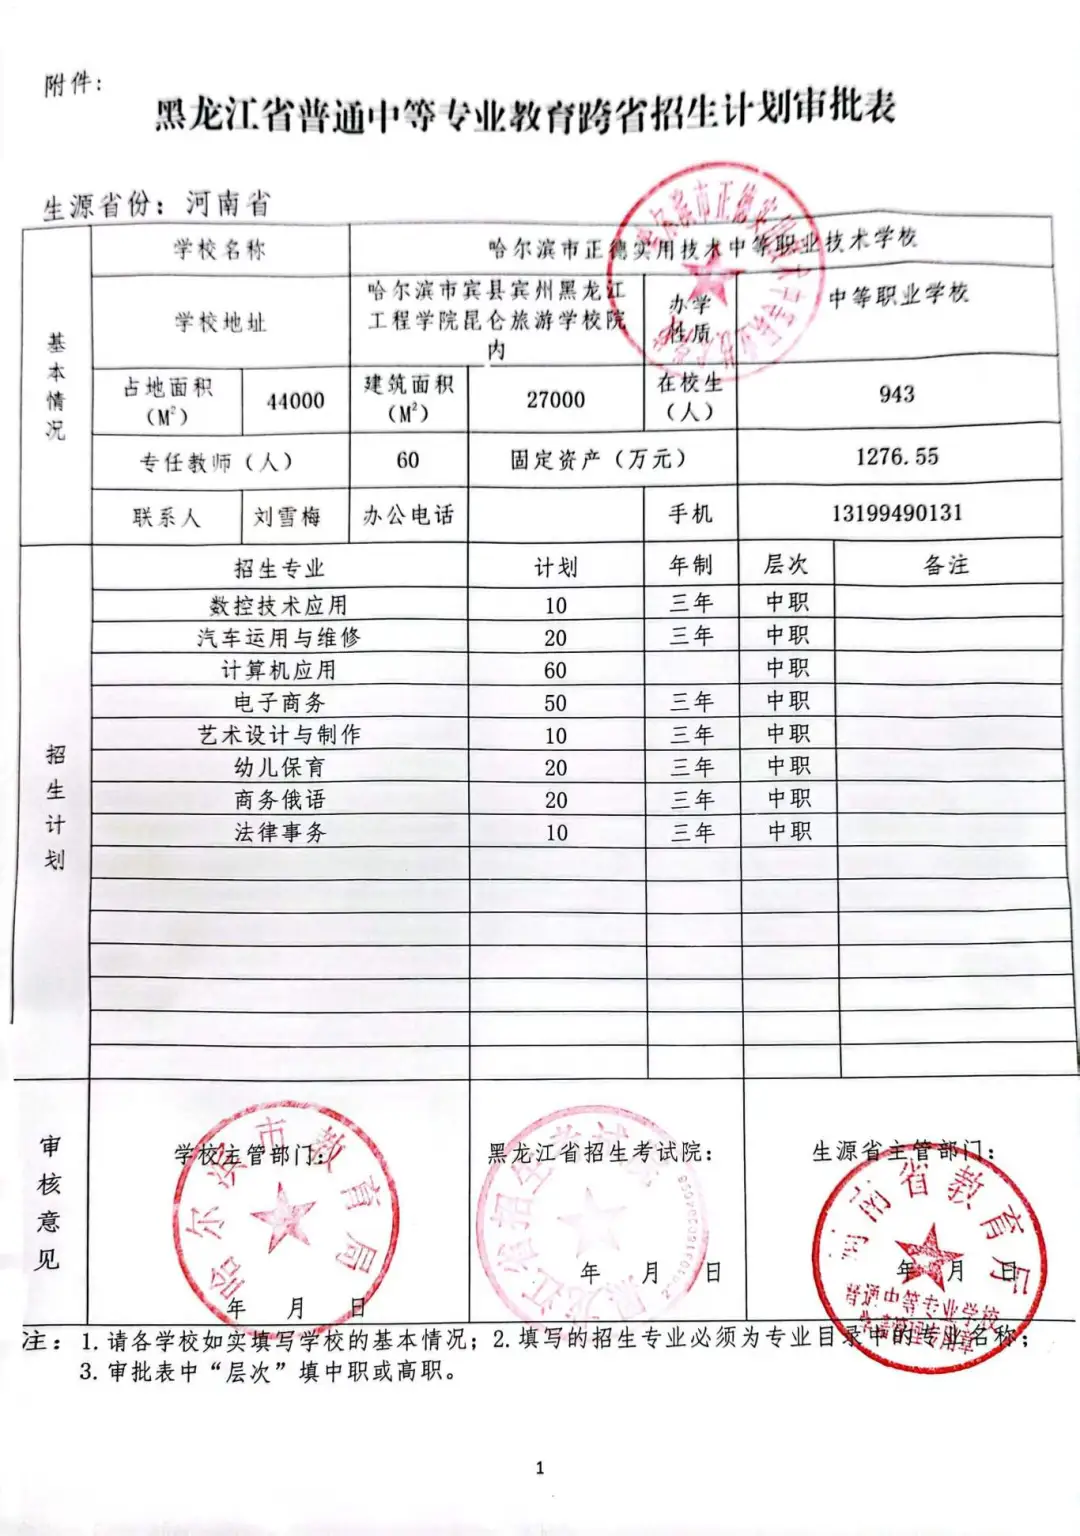 附件:
黑龙江省普通中等专业教育跨省招生计划审批表
生源省份: 河南省
基本情况
学校名称 哈尔滨市正德实用技术中等职业技术学校
学校地址 哈尔滨市宾县宾州黑龙江工程学院昆仑旅游学校院内 办学性质 中等职业学校
占地面积(M²) 44000 建筑面积(M²) 27000 在校生(人) 943
专任教师(人) 60 固定资产(万元) 1276.55
联系人 刘雪梅 办公电话 手机 13199490131
招生计划
招生专业 计划 年制 层次 备注
数控技术应用 10 三年 中职
汽车运用与维修 20 三年 中职
计算机应用 60 中职
电子商务 50 三年 中职
艺术设计与制作 10 三年 中职
幼儿保育 20 三年 中职
商务俄语 20 三年 中职
法律事务 10 三年 中职
审核意见
学校主管部门: 黑龙江省招生考试院: 生源省主管部门:
哈尔滨市教育局
河南省教育厅
普通中等专业学校
年 月 日 年 月 日 年 月 日
注: 1.请各学校如实填写学校的基本情况; 2.填写的招生专业必须为专业目录中的专业名称;
3.审批表中“层次”填中职或高职。
1